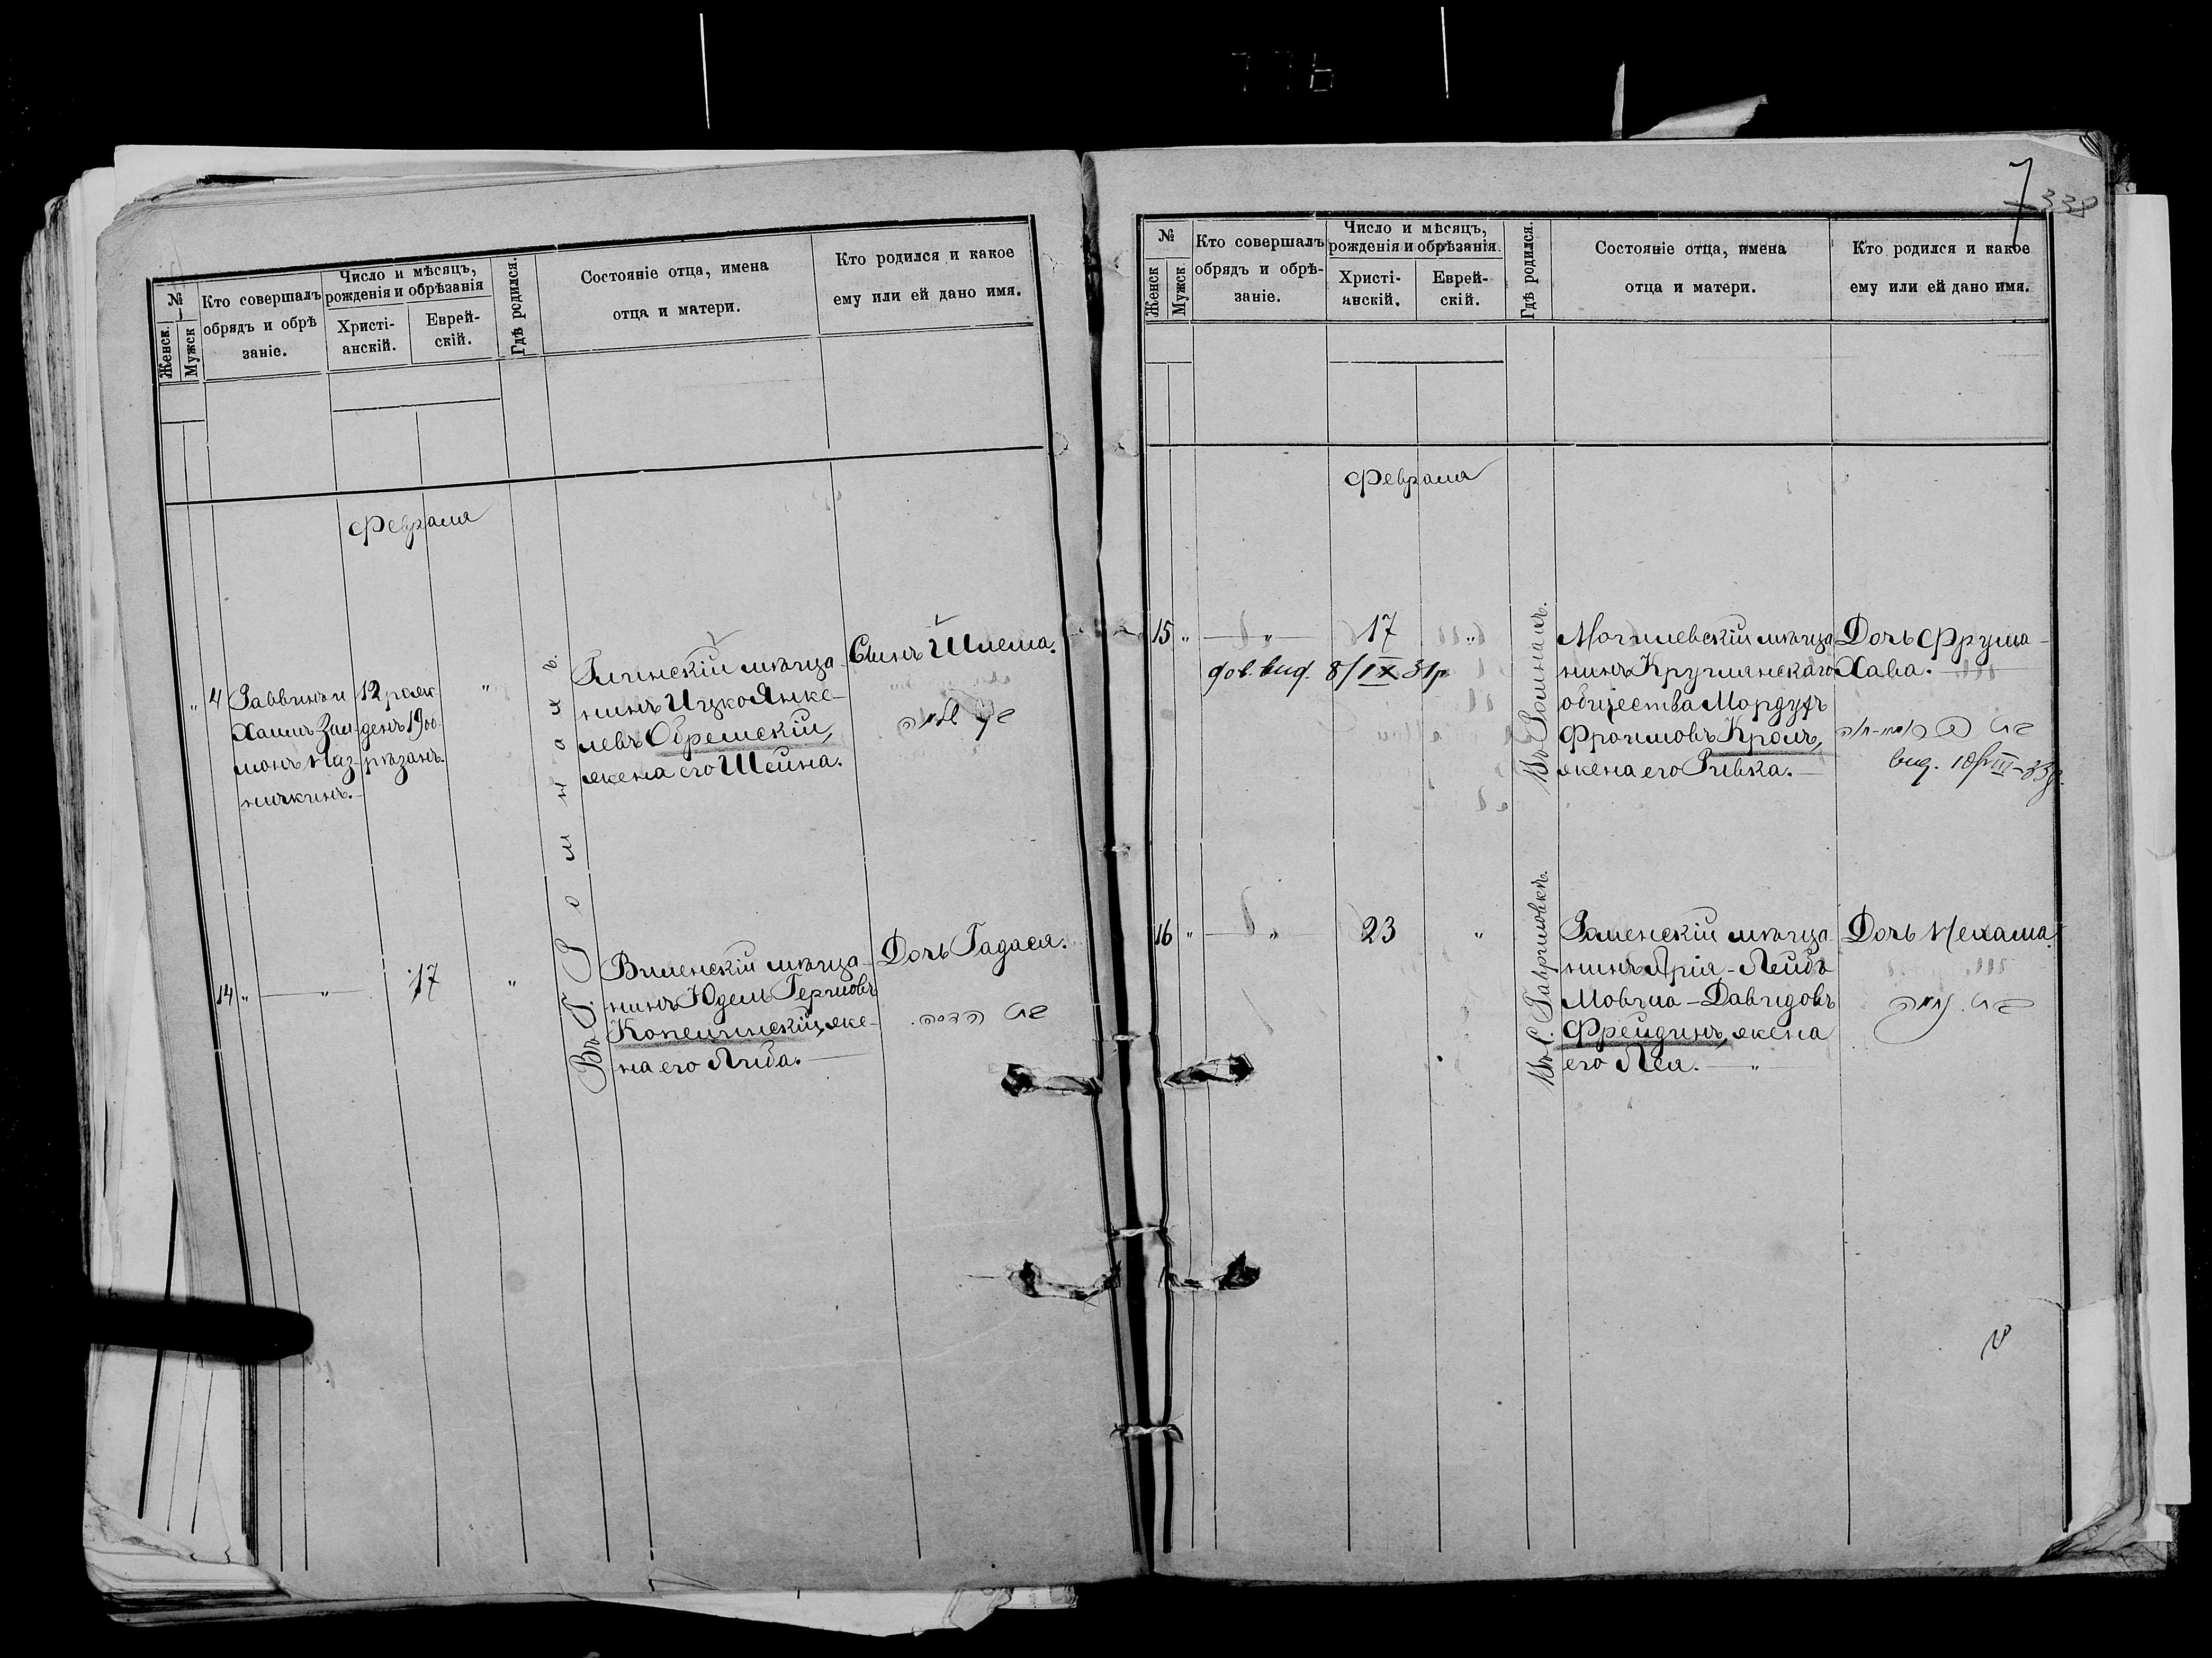 №
Женск.
Мужск
Кто совершалъ
обрядъ и обрѣ
заніе.
Число и мѣсяцъ,
рожденія и обрѣзанія
Христі-
анскій.
Еврей-
скій.
Гдѣ родился.
Состояніе отца, имена
отца и матери.
Кто родился и какое
ему или ей дано имя.
Февраля
" 4
Раввинъ и
Хаимъ Зал-
монъ
12 рожс
денъ 19 об-
рѣзанъ.
"
Въ г. Ромнахъ.
мѣща-
нинъ Ицко Янке-
левъ Обремскій,
жена его Шейна.
Сынъ Шлема.
14 " — " —
17
"
Виленскій мѣща-
нинъ Юдель Гершовъ
жe-
на его Либа. —
Дочь Гадася.
7
№
Женск
Мужск.
Кто совершалъ
обрядъ и обрѣ-
заніе.
Число и мѣсяцъ,
рожденія и обрѣзанія.
Христі-
анскій.
Еврей-
скій.
Гдѣ родился.
Состояніе отца, имена
отца и матери.
Кто родился и какое
ему или ей дано имя.
Февраля
15 " — " —
17
"
дов. выд. 8/IX 31р
Въ Ромнахъ.
Могилевскій мѣща
нинъ Круглянскаго
общества Мордухъ
Фроимовъ Кролъ,
жена его Ривка. —
Дочь Фрума-
Хава. —
выд. 10/VIII-33р.
16 " — " —
23
"
Въ С. Гавриловкѣ.
Роменскій мѣща
нинъ Арія-Лейбъ
Мовша-Давидовъ
Фрейдинъ, жена
его Лея. — " —
Дочь Нехама.